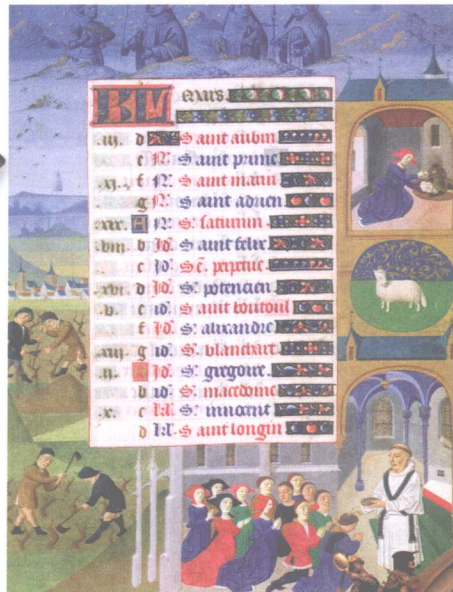 KL Mars
.iii. d Saint aubin
c N. Saint prime
.xi. f N. Saint marin
g N. Saint adrien
.xix. A N. S. saturnin
.viii. b Jd. Saint felix
c Jd. Sc. perpetue
.xvi. d Jd. S. potencien
.v. e id. Saint boutoul
f Jd. S. alixandre
.xiii. g id. S. blanchart
.ii. Jd. S. gregoire
b id. S. macedoine
.x. c kl. S. innocent
d kl. Saint longin